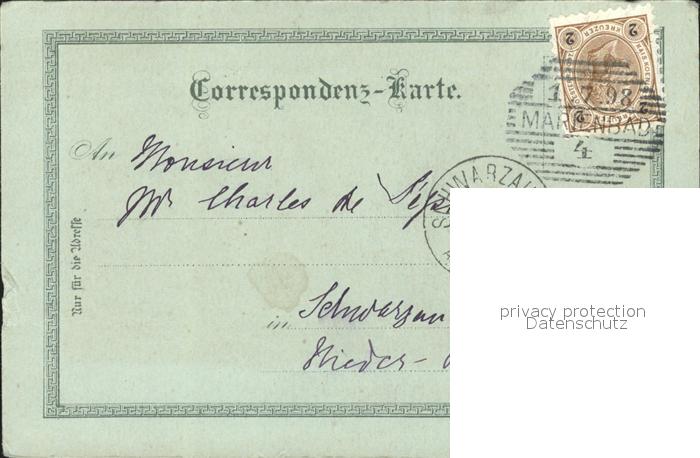 Correspondenz-Karte.
2 KREUZER 2
1 7.98
MARIENBAD
4
An Monsieur
Mr Charles de
SCHWARZAU
Nur für die Adresse
in Schwarzau
Nieder-
privacy protection
Datenschutz